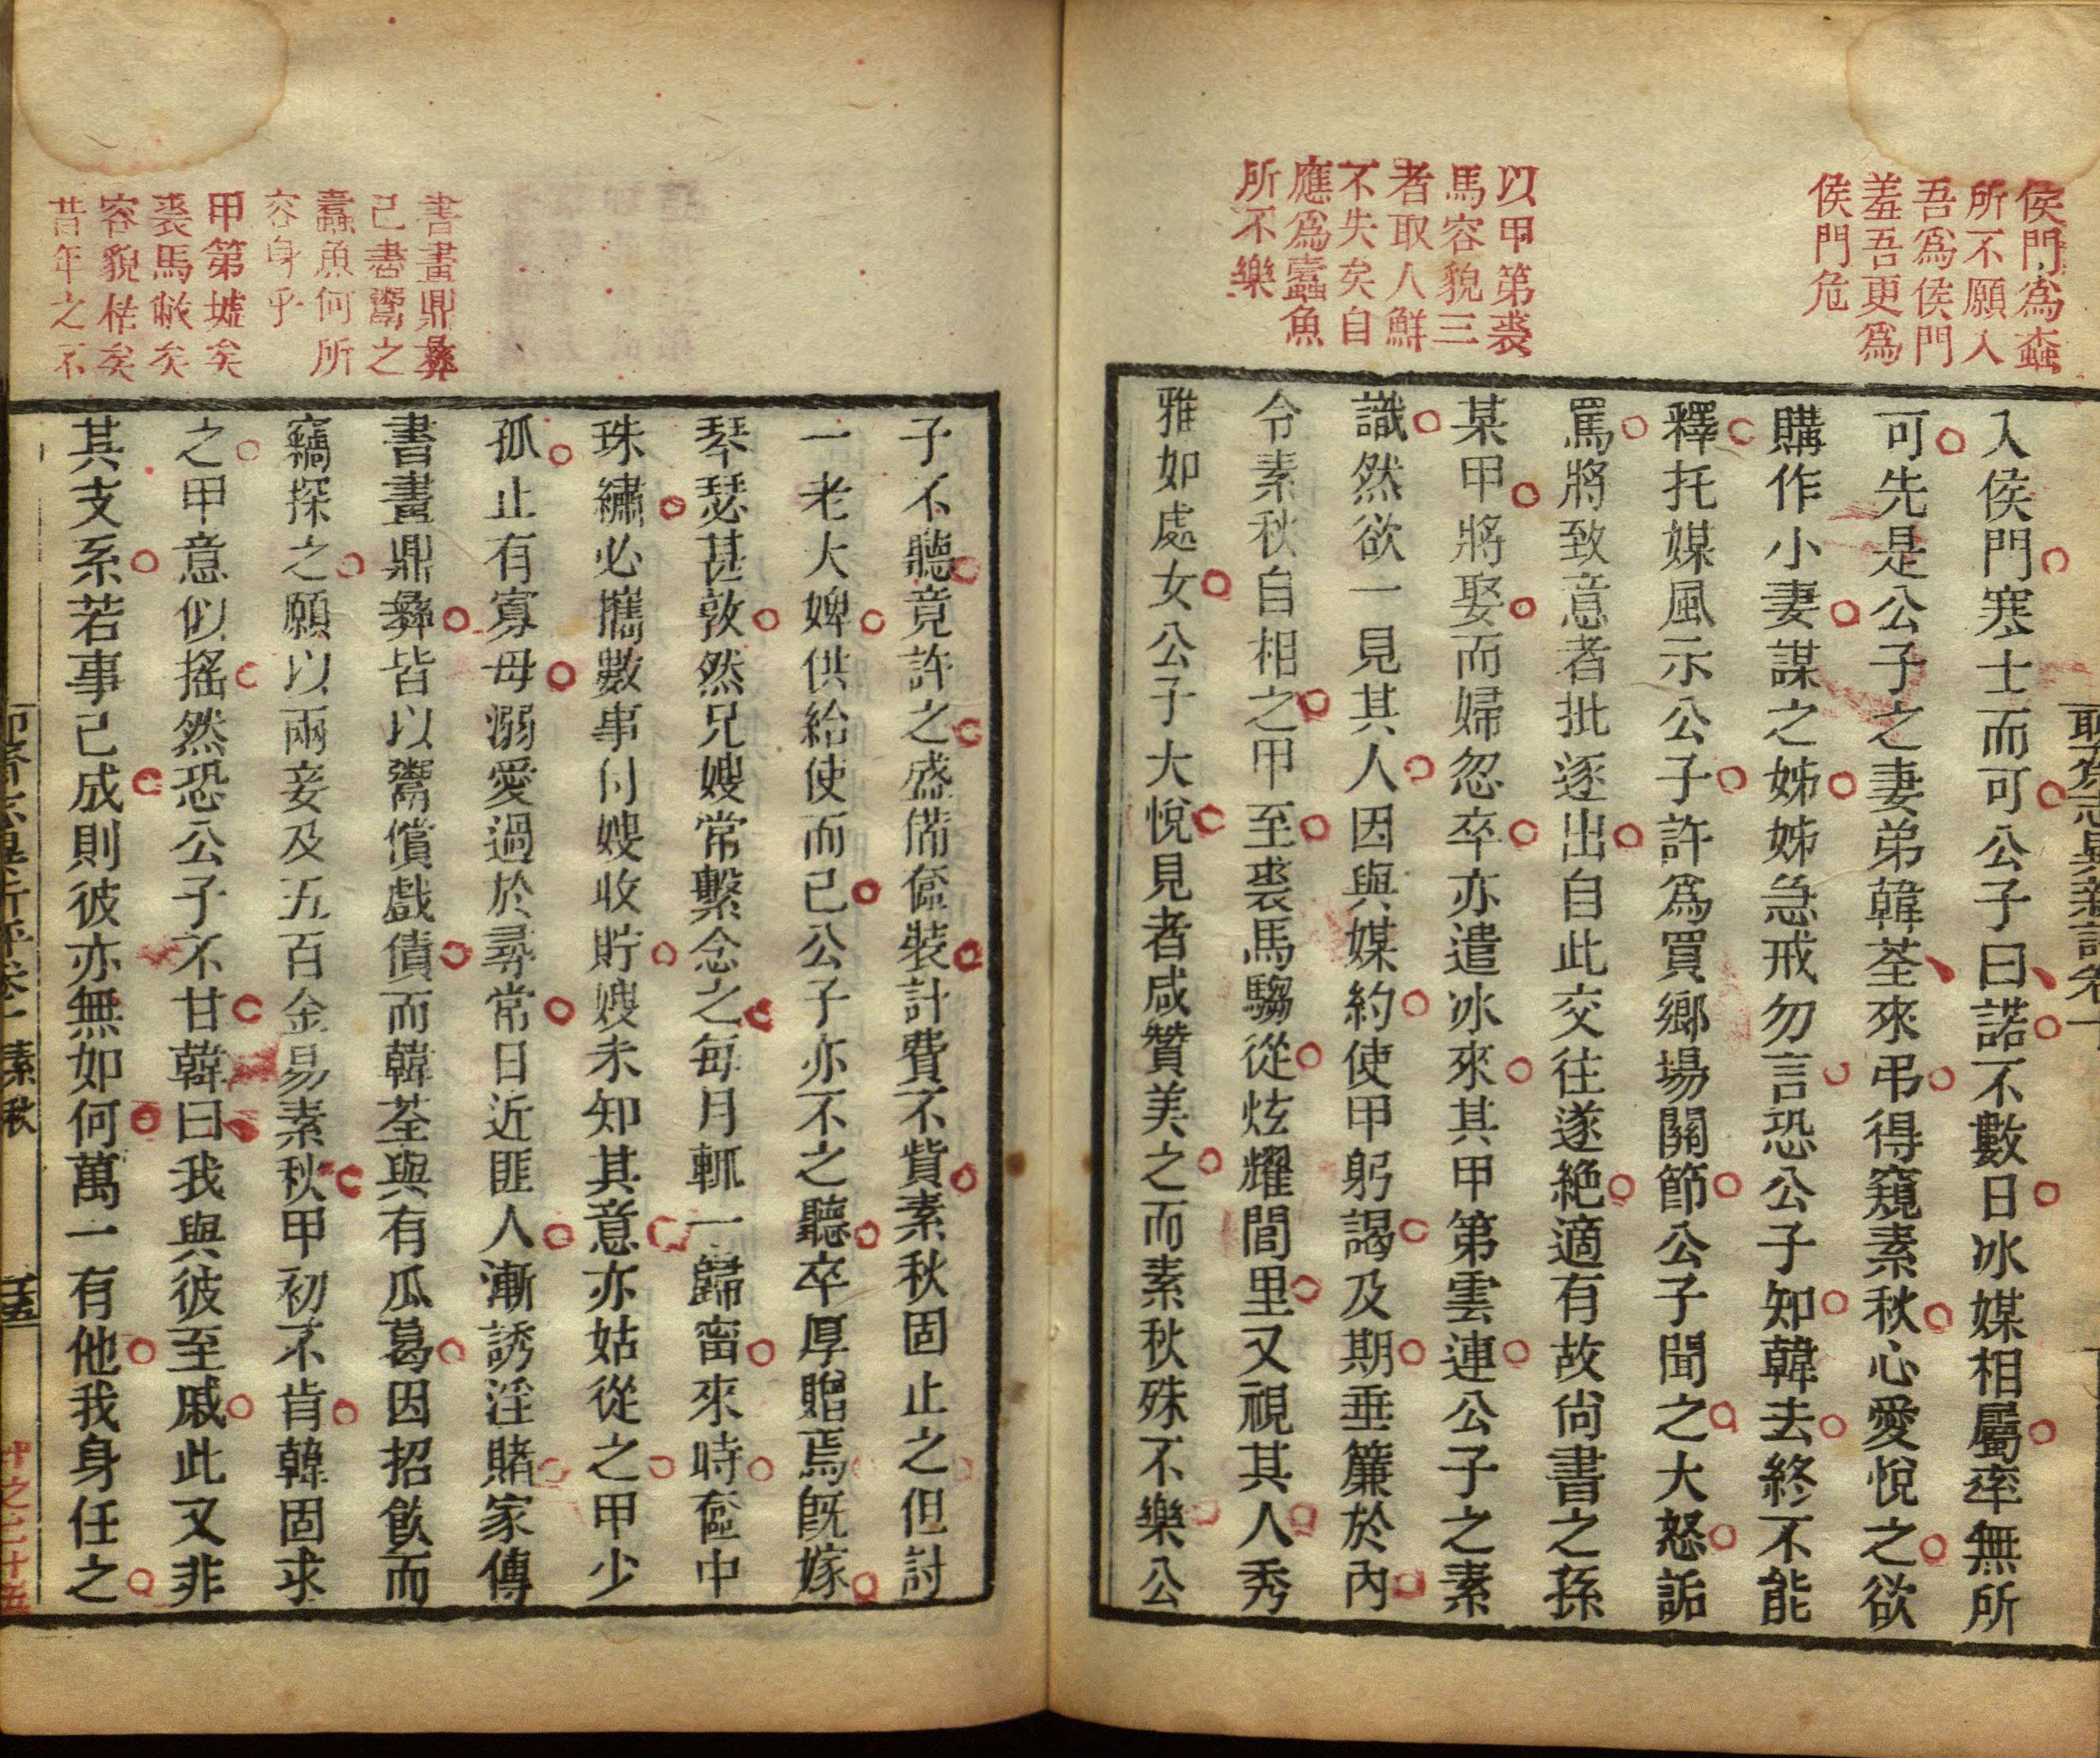 侯門為蠧
所不願入
吾為侯門
羞吾更為
侯門危
以甲第裘
馬容貌三
者取人鮮
不失矣自
應為蠧魚
所不樂
入侯門寒士而可公子曰諾不數日冰媒相屬率無所
可先是公子之妻弟韓荃來弔得窺素秋心愛悅之欲
購作小妻謀之姊姊急戒勿言恐公子知韓去終不能
釋托媒風示公子許為買鄉場關節公子聞之大怒詬
罵將致意者批逐出自此交往遂絶適有故尙書之孫
某甲將娶而婦忽卒亦遣冰來其甲第雲連公子之素
識然欲一見其人因與媒約使甲躬謁及期垂簾於內
令素秋自相之甲至裘馬騶從炫耀閭里又視其人秀
雅如處女公子大悅見者咸贊美之而素秋殊不樂公
書畫鼎彝
己書鬻之
蠹魚何所
容身乎
甲第墟矣
裘馬敝矣
容貌枯矣
昔年之不
子不聽竟許之盛備奩裝計費不貲素秋固止之但討
一老大婢供給使而已公子亦不之聽卒厚贈焉旣嫁
琴瑟甚敦然兄嫂常繫念之每月輒一歸甯來時奩中
珠繡必攜數事付嫂收貯嫂未知其意亦姑從之甲少
孤止有寡母溺愛過於尋常日近匪人漸誘淫賭家傳
書畫鼎彝皆以鬻償戲債而韓荃與有瓜葛因招飲而
竊探之願以兩妾及五百金易素秋甲初不肯韓固求
之甲意似搖然恐公子不甘韓曰我與彼至戚此又非
其支系若事己成則彼亦無如何萬一有他我身任之
素秋